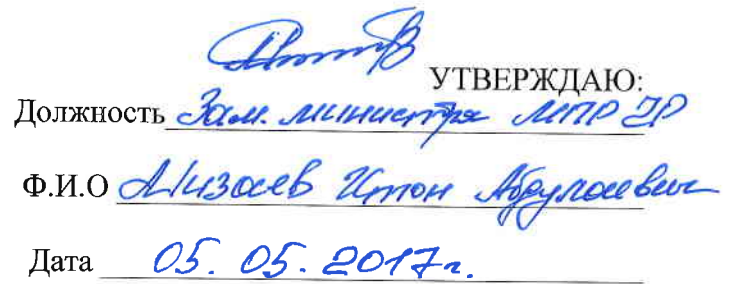 УТВЕРЖДАЮ:
Должность Зам. министра МПР ЧР
Ф.И.О Мизаев Итон Абдулаевич
Дата 05. 05. 2017г.